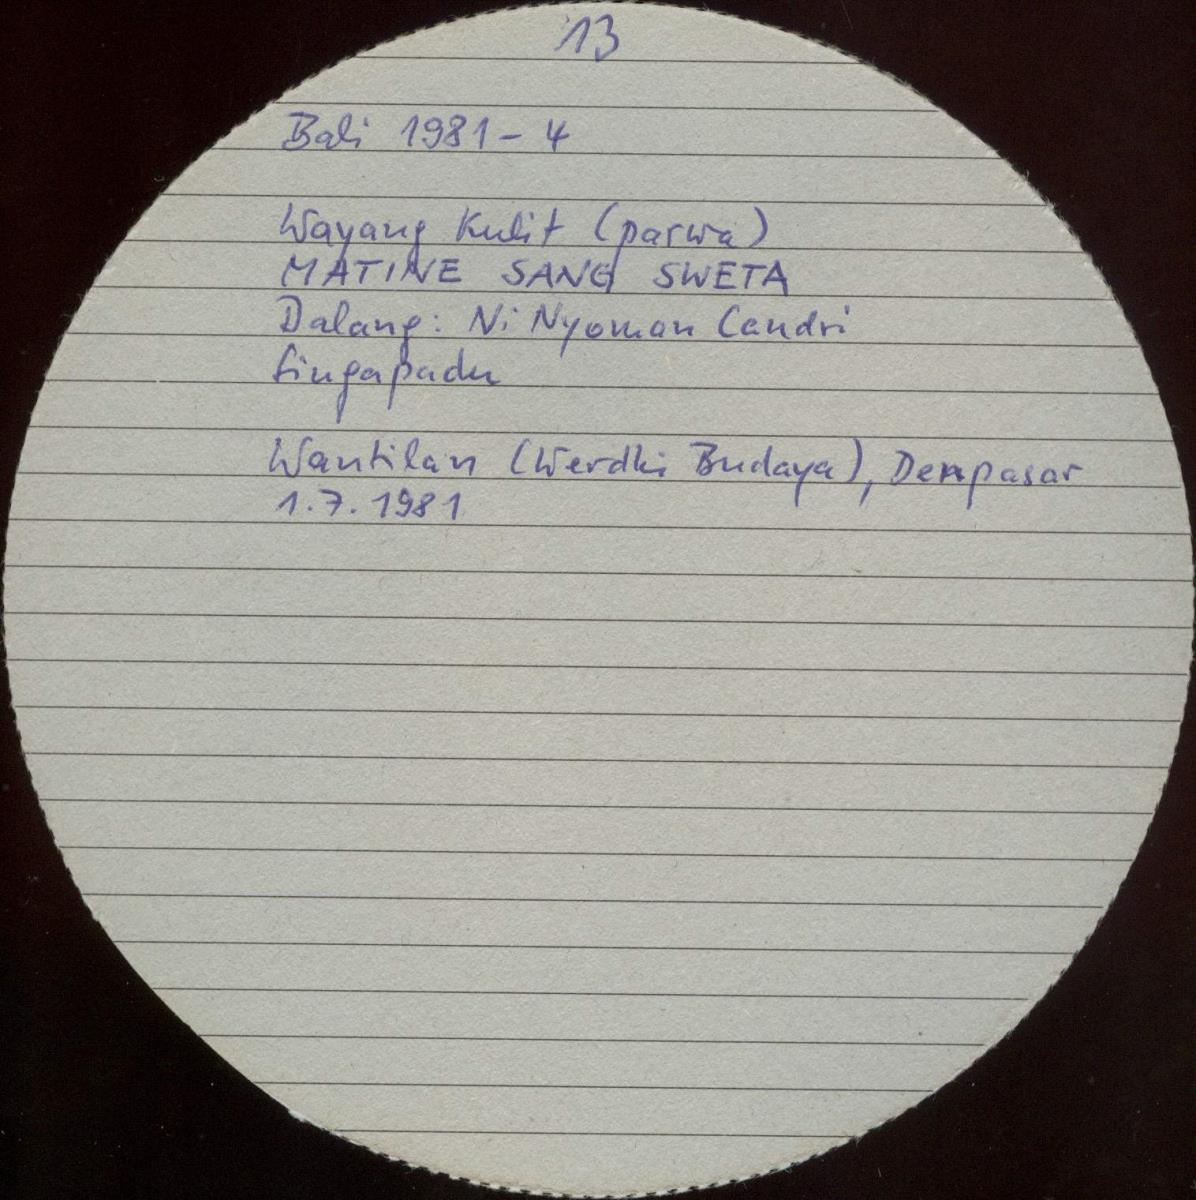 13
Bali 1981 - 4
Wayang Kulit (parwa)
MATINE SANG SWETA
Dalang: Ni Nyoman Candri
Singapadu
Wantilan (Werdhi Budaya), Denpasar
1.7.1981